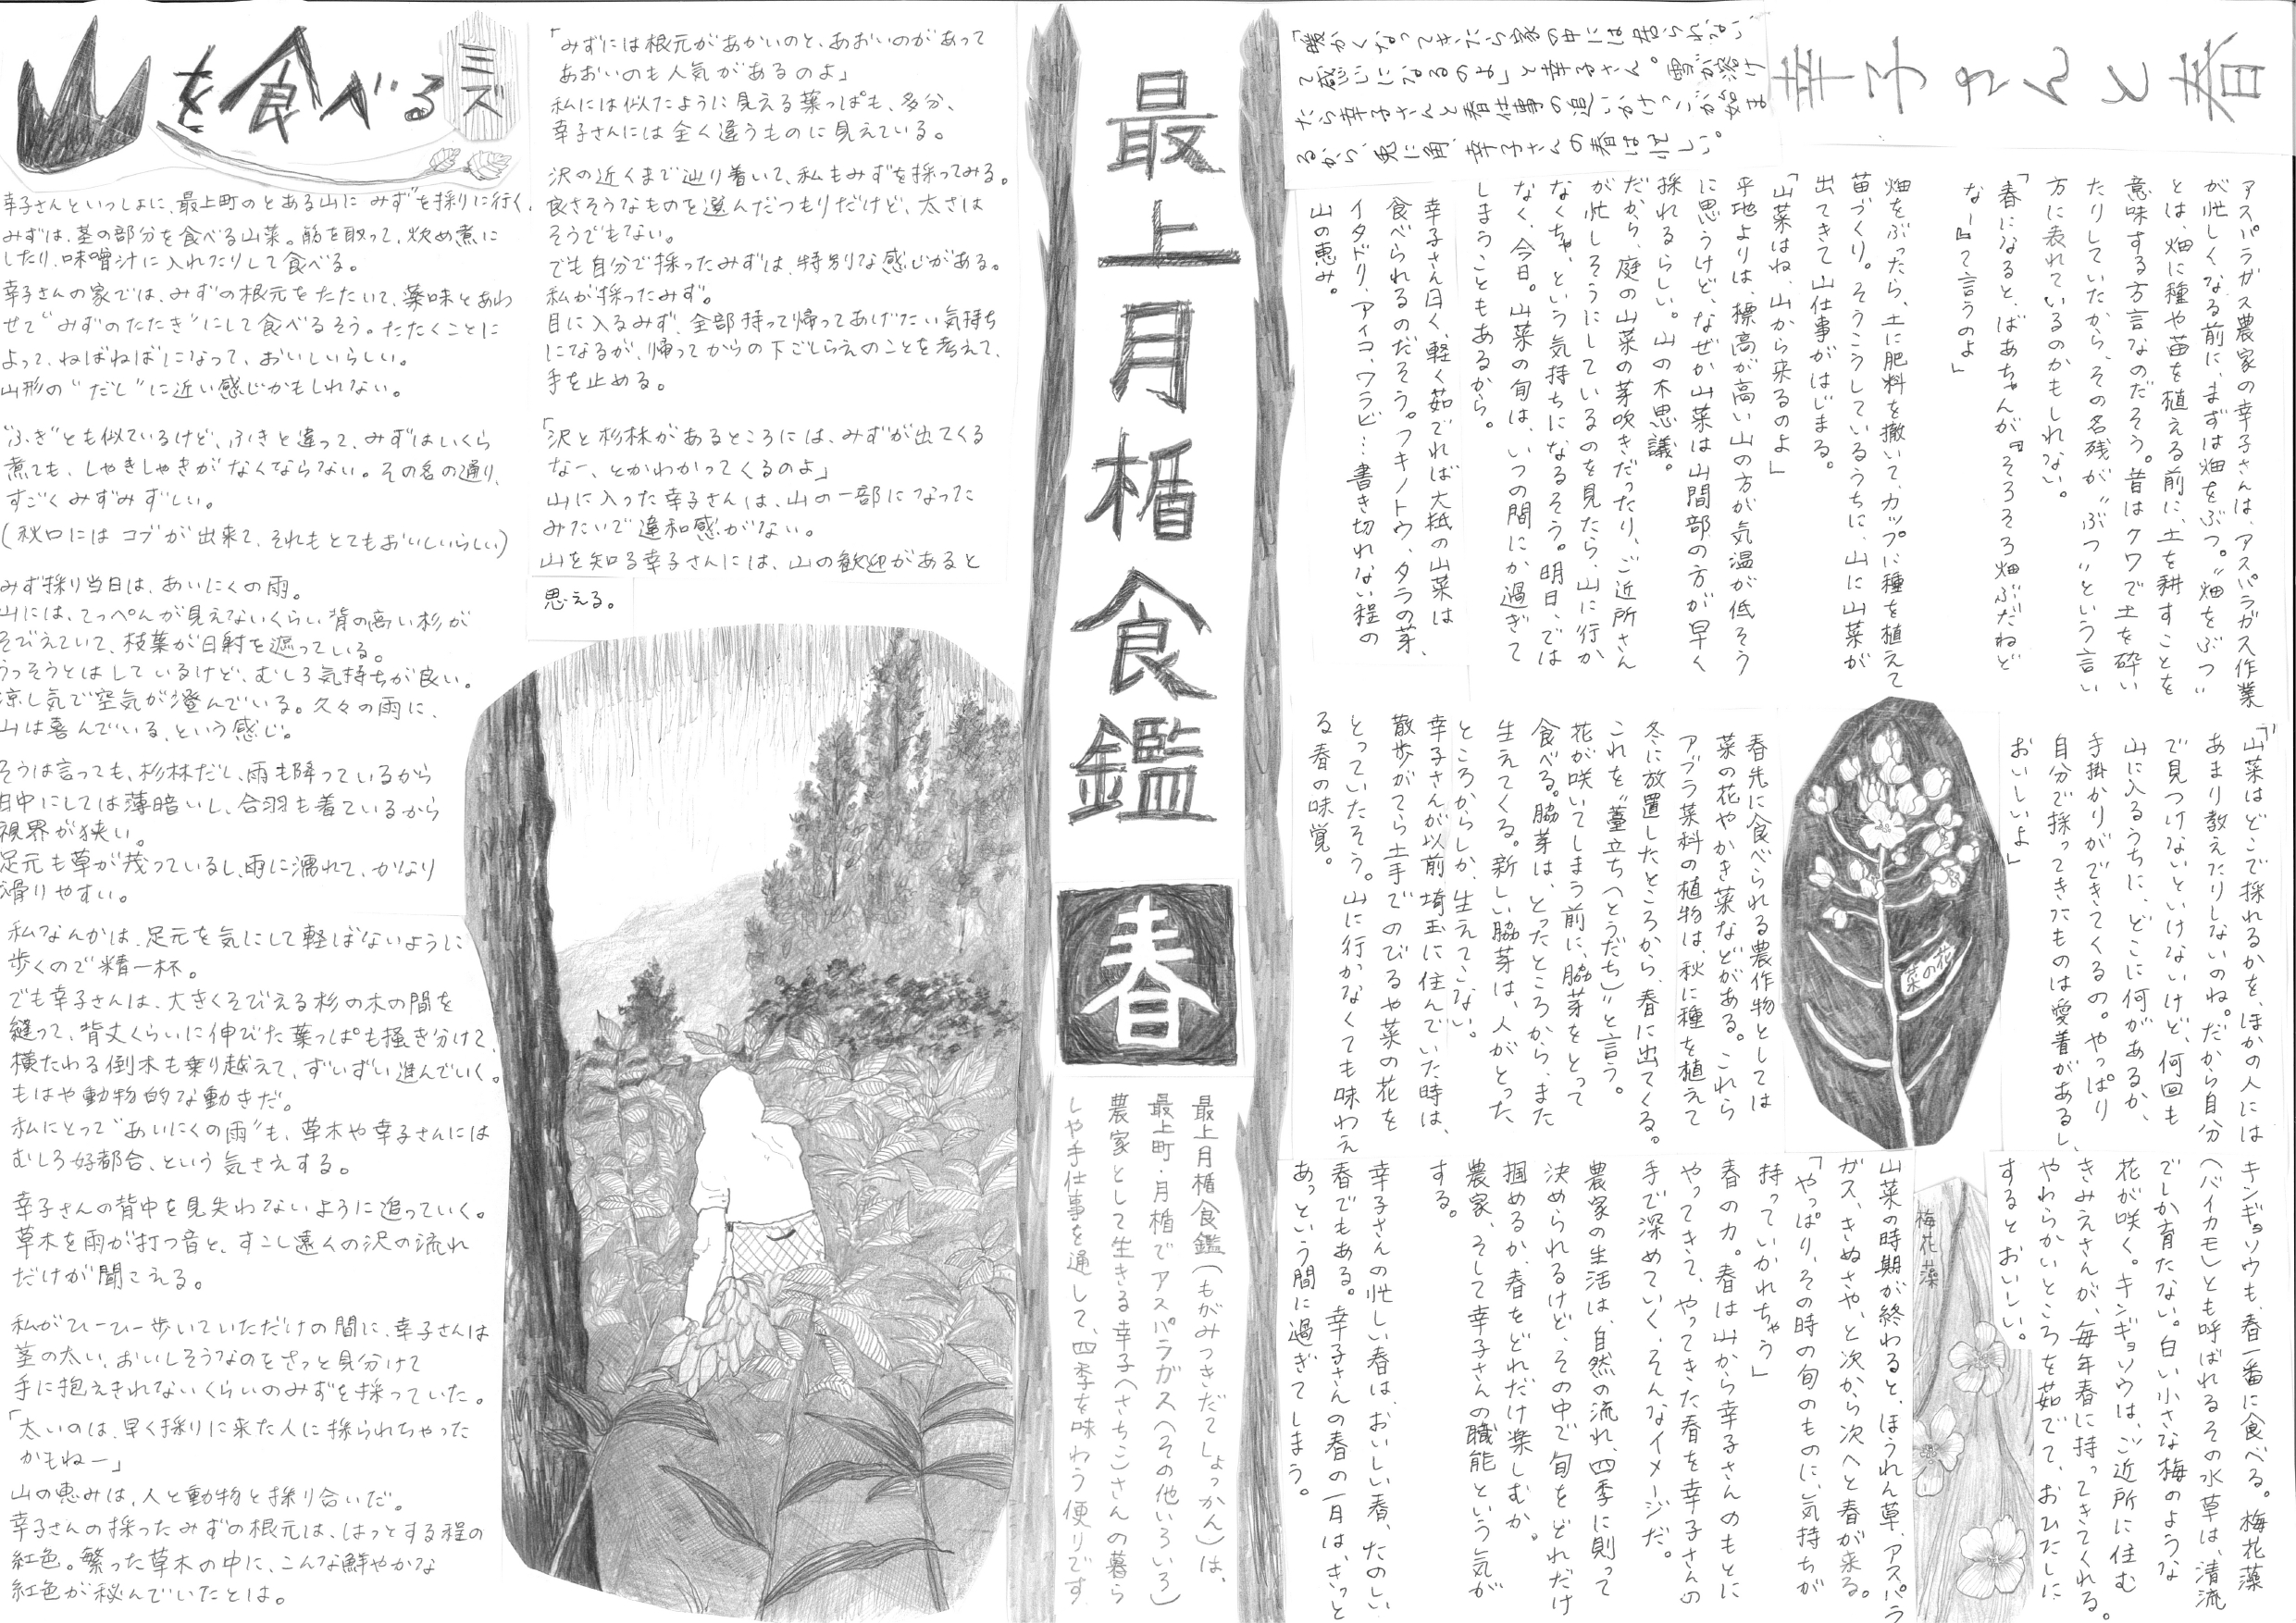 幸子さんと春
「暖かくなってきたら家の中には居られない、
て感じになるのよ」と幸子さん。雪が溶け
たら幸子さんと春仕事の追いかけっこが始ま
るから、兎に角、幸子さんの春は忙しい。
アスパラガス農家の幸子さんは、アスパラガス作業
が忙しくなる前に、まずは畑をぶつ。“畑をぶつ”
とは、畑に種や苗を植える前に、土を耕すことを
意味する方言なのだそう。昔はクワで土を砕い
たりしていたから、その名残が“ぶつ”という言い
方に表れているのかもしれない。
「春になると、ばあちゃんが『そろそろ畑ぶだねど
なー』て言うのよ」
畑をぶったら、土に肥料を撒いて、カップに種を植えて
苗づくり。そうこうしているうちに、山に山菜が
出てきて山仕事がはじまる。
「山菜はね、山から来るのよ」
平地よりは、標高が高い山の方が気温が低そう
に思うけど、なぜか山菜は山間部の方が早く
採れるらしい。山の不思議。
だから、庭の山菜の芽吹きだったり、ご近所さん
が忙しそうにしているのを見たら、山に行か
なくちゃ、という気持ちになるそう。明日、では
なく、今日。山菜の旬は、いつの間にか過ぎて
しまうこともあるから。
幸子さん曰く、軽く茹でれば大抵の山菜は
食べられるのだそう。フキノトウ、タラの芽、
イタドリ、アイコ、ワラビ…書き切れない程の
山の恵み。
「山菜はどこで採れるかを、ほかの人には
あまり教えたりしないのね。だから自分
で見つけないといけないけど、何回も
山に入るうちに、どこに何があるか、
手掛かりができてくるの。やっぱり
自分で採ってきたものは愛着があるし、
おいしいよ」
菜の花
春先に食べられる農作物としては
菜の花やかき菜などがある。これら
アブラ菜科の植物は、秋に種を植えて
冬に放置したところから、春に出てくる。
これを“薹立ち（とうだち）”と言う。
花が咲いてしまう前に、脇芽をとって
食べる。脇芽は、とったところから、また
生えてくる。新しい脇芽は、人がとった
ところからしか、生えてこない。
幸子さんが以前埼玉に住んでいた時は、
散歩がてら土手でのびるや菜の花を
とっていたそう。山に行かなくても味わえ
る春の味覚。
キンギョソウも、春一番に食べる。梅花藻
（バイカモ）とも呼ばれるその水草は、清流
でしか育たない。白い小さな梅のような
花が咲く。キンギョソウは、ご近所に住む
きみえさんが、毎年春に持ってきてくれる。
やわらかいところを茹でて、おひたしに
するとおいしい。
梅花藻
山菜の時期が終わると、ほうれん草、アスパラ
ガス、きぬさや、と次から次へと春が来る。
「やっぱり、その時の旬のものに気持ちが
持っていかれちゃう」
春の力。春は山から幸子さんのもとに
やってきて、やってきた春を幸子さんの
手で深めていく、そんなイメージだ。
農家の生活は、自然の流れ、四季に則って
決められるけど、その中で旬をどれだけ
掴めるか、春をどれだけ楽しむか。
農家、そして幸子さんの職能という気が
する。
幸子さんの忙しい春は、おいしい春、たのしい
春でもある。幸子さんの春の一月は、きっと
あっという間に過ぎてしまう。
最上月楯食鑑
春
最上月楯食鑑（もがみつきだてしょっかん）は、
最上町・月楯でアスパラガス（その他いろいろ）
農家として生きる幸子（さちこ）さんの暮ら
しや手仕事を通して、四季を味わう便りです
山を食べる
ミズ
幸子さんといっしょに、最上町のとある山に“みず”を採りに行く。
みずは、茎の部分を食べる山菜。筋を取って、炒め煮に
したり、味噌汁に入れたりして食べる。
幸子さんの家では、みずの根元をたたいて、薬味とあわ
せて“みずのたたき”にして食べるそう。たたくことに
よって、ねばねばになって、おいしいらしい。
山形の“だし”に近い感じかもしれない。
“ふき”とも似ているけど、ふきと違って、みずはいくら
煮ても、しゃきしゃきがなくならない。その名の通り、
すごくみずみずしい。
（秋口にはコブが出来て、それもとてもおいしいらしい）
みず採り当日は、あいにくの雨。
山には、てっぺんが見えないくらい背の高い杉が
そびえていて、枝葉が日射を遮っている。
うっそうとはしているけど、むしろ気持ちが良い。
涼し気で空気が澄んでいる。久々の雨に、
山は喜んでいる、という感じ。
そうは言っても、杉林だし、雨も降っているから
日中にしては薄暗いし、合羽も着ているから
視界が狭い。
足元も草が茂っているし、雨に濡れて、かなり
滑りやすい。
私なんかは、足元を気にして転ばないように
歩くので精一杯。
でも幸子さんは、大きくそびえる杉の木の間を
縫って、背丈くらいに伸びた葉っぱも掻き分けて、
横たわる倒木も乗り越えて、ずいずい進んでいく。
もはや動物的な動きだ。
私にとって“あいにくの雨”も、草木や幸子さんには
むしろ好都合、という気さえする。
幸子さんの背中を見失わないように追っていく。
草木を雨が打つ音と、すこし遠くの沢の流れ
だけが聞こえる。
私がひーひー歩いていただけの間に、幸子さんは
茎の太い、おいしそうなのをさっと見分けて
手に抱えきれないくらいのみずを採っていた。
「太いのは、早く採りに来た人に採られちゃった
かもねー」
山の恵みは、人と動物と採り合いだ。
幸子さんの採ったみずの根元は、はっとする程の
紅色。繁った草木の中に、こんな鮮やかな
紅色が秘んでいたとは。
「みずには根元があかいのと、あおいのがあって
あおいのも人気があるのよ」
私には似たように見える葉っぱも、多分、
幸子さんには全く違うものに見えている。
沢の近くまで辿り着いて、私もみずを採ってみる。
良さそうなものを選んだつもりだけど、太さは
そうでもない。
でも自分で採ったみずは、特別な感じがある。
私が採ったみず。
目に入るみず、全部持って帰ってあげたい気持ち
になるが、帰ってからの下ごしらえのことを考えて、
手を止める。
「沢と杉林があるところには、みずが出てくる
なー、とかわかってくるのよ」
山に入った幸子さんは、山の一部になった
みたいで違和感がない。
山を知る幸子さんには、山の歓迎があると
思える。